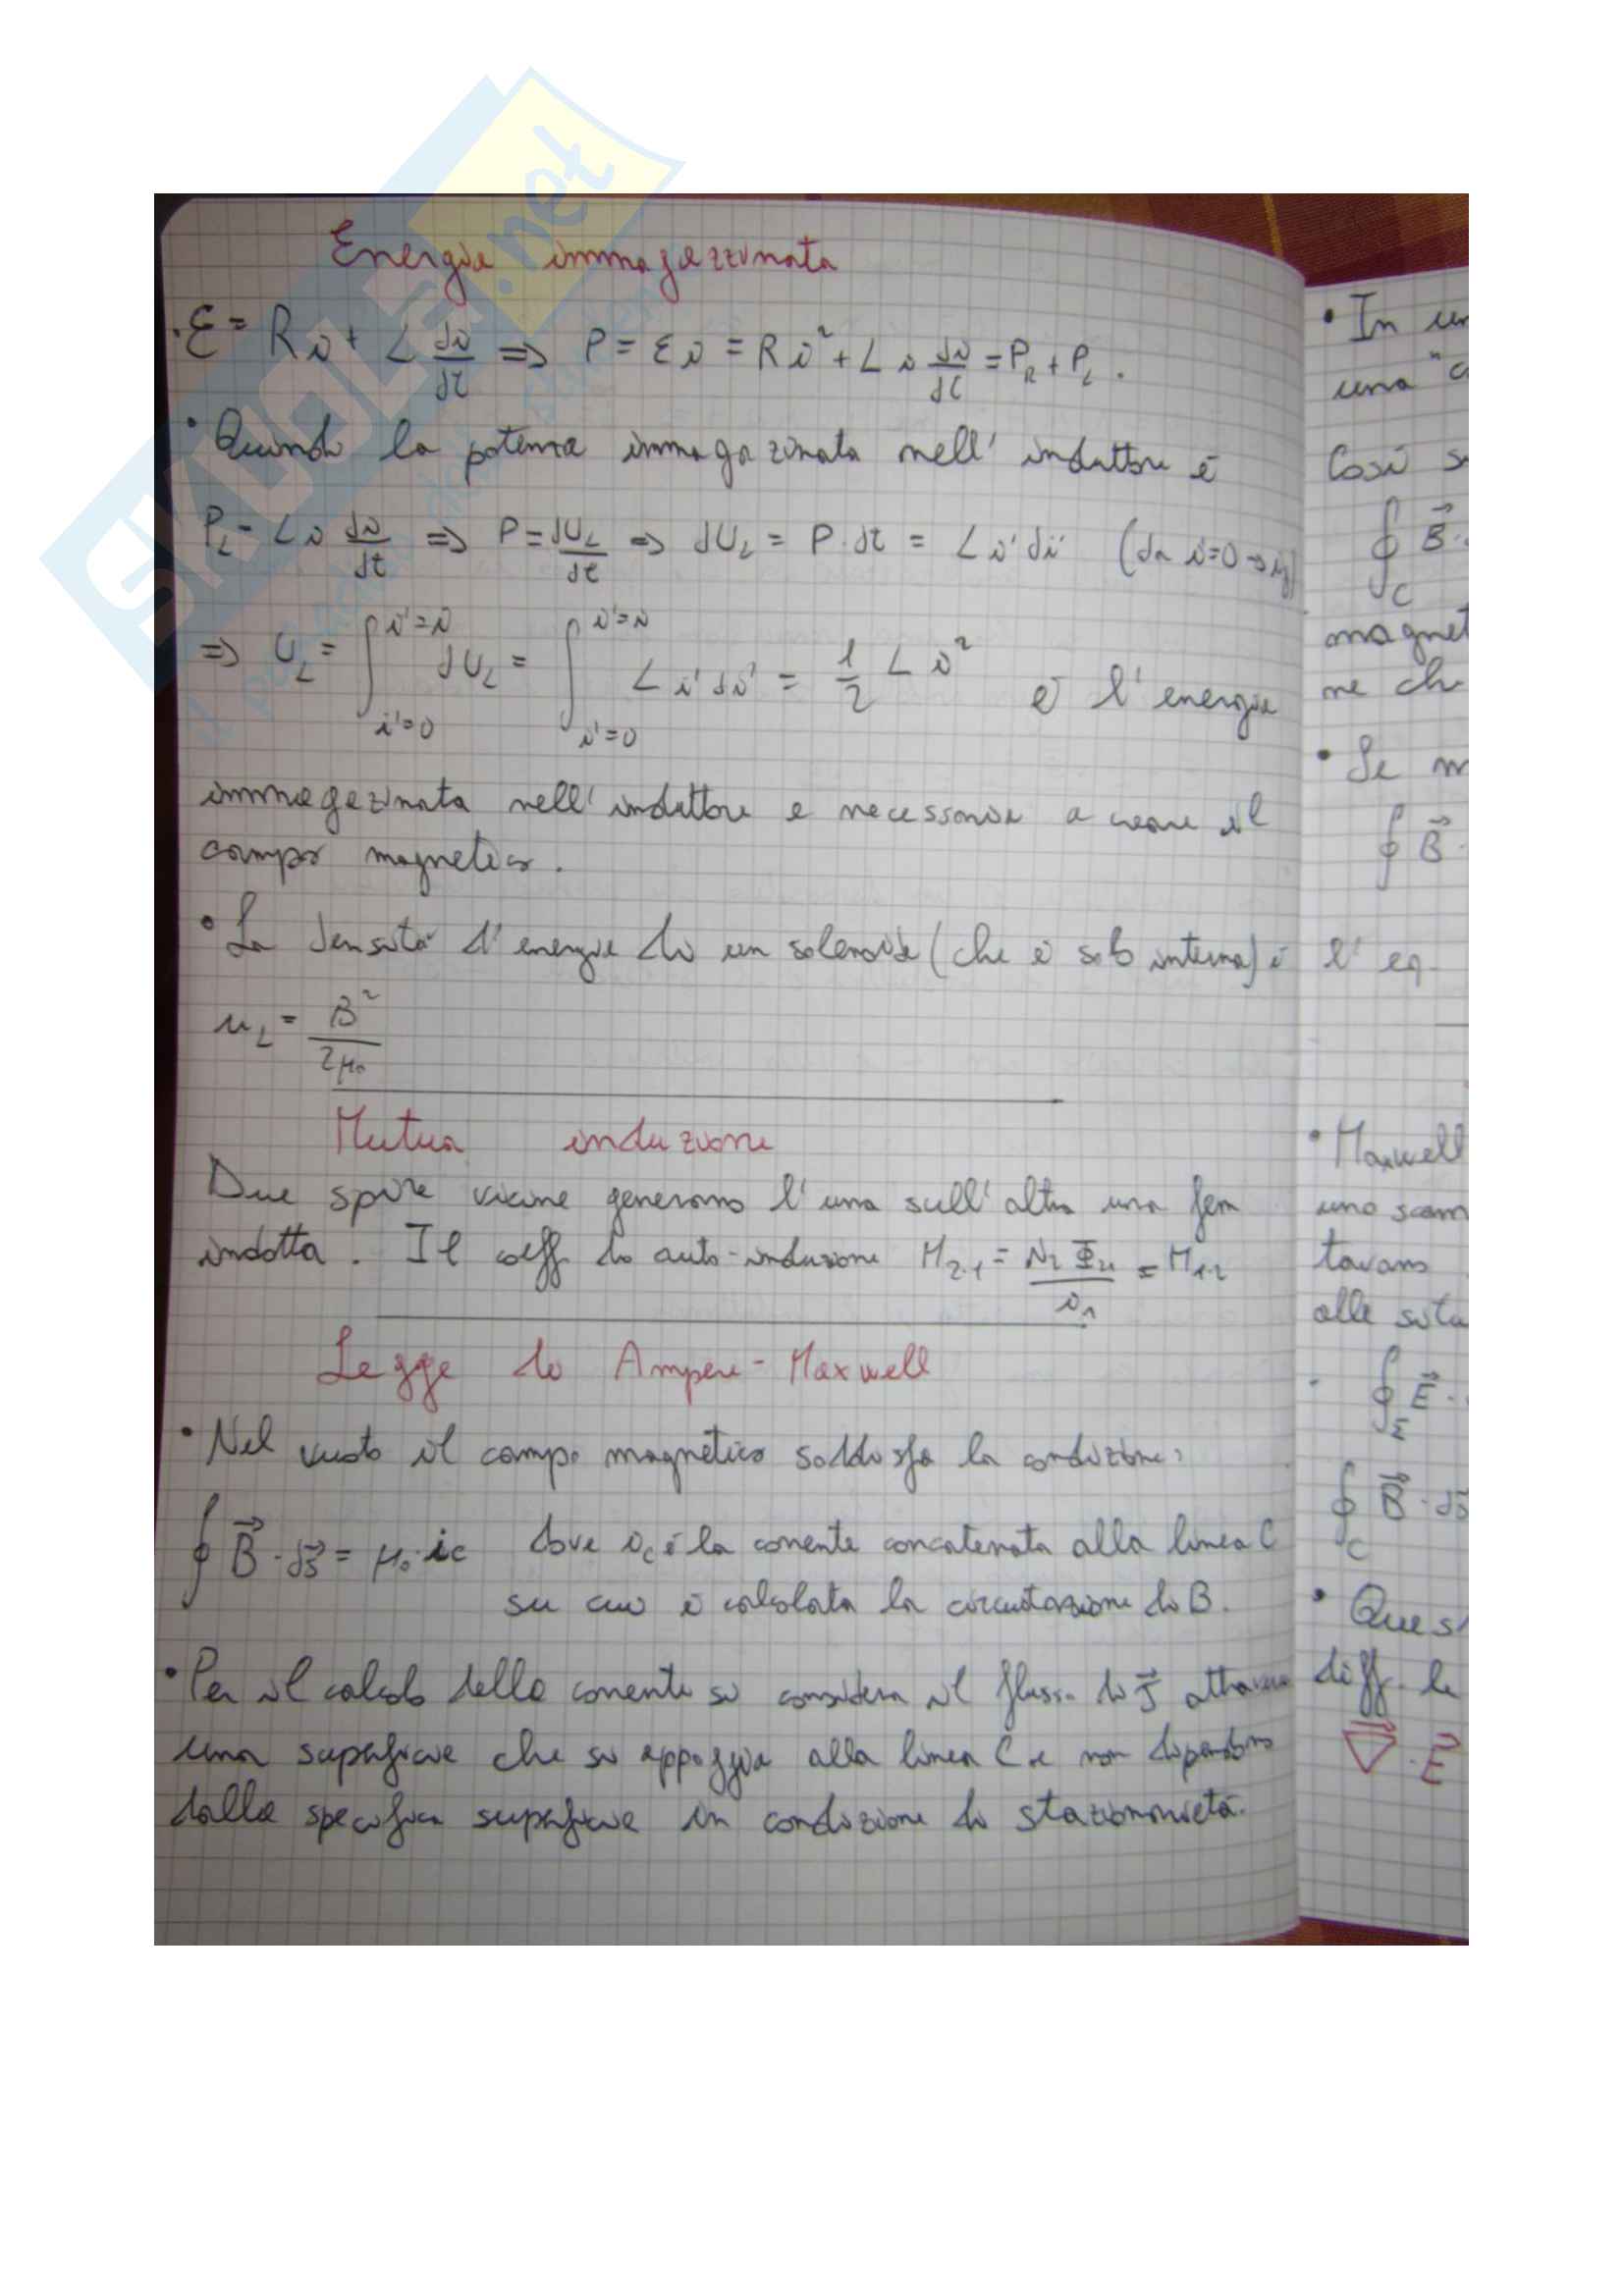 Energia immagazzinata
• ℰ = R i + L di/dt => P = ℰ i = R i² + L i di/dt = P_R + P_L .
• Quindi la potenza immagazinata nell' induttore è
P_L = L i di/dt => P = dU_L/dt => dU_L = P · dt = L i' di' (da i=0 → if)
=> U_L = ∫_{i'=0}^{i'=i} dU_L = ∫_{i'=0}^{i'=i} L i' di' = 1/2 L i² è l' energia
immagazinata nell' induttore e necessaria a creare il
campo magnetico .
• La densità d' energia di un solenoide (che è solo interna) è
u_L = B²/2μ₀
Mutua induzione
Due spire vicine generano l' una sull' altra una fem
indotta . Il coeff di auto-induzione M_{2-1} = N₂ Φ₂₁/i₁ = M_{1-2}
Legge di Ampere - Maxwell
• Nel vuoto il campo magnetico soddisfa la condizione:
∮ B⃗ · ds⃗ = μ₀ · ic dove i_c è la corrente concatenata alla linea C
su cui è calcolata la circuitazione di B.
• Per il calcolo della corrente si considera il flusso di J⃗ attraverso
una superficie che si appoggia alla linea C e non dipendono
dalla specifica superficie in condizione di stazionarietà.
• In un
una "c
Così s
∮_C B⃗ ·
magnet
me ch
• Se m
∮ B⃗ ·
l' eq.
• Maxwell
uno scam
tavano
alla situ
· ∮_Σ E⃗ ·
∮_C B⃗ · ds
• Ques
diff. le
∇⃗ · E⃗
SKUOLA.net